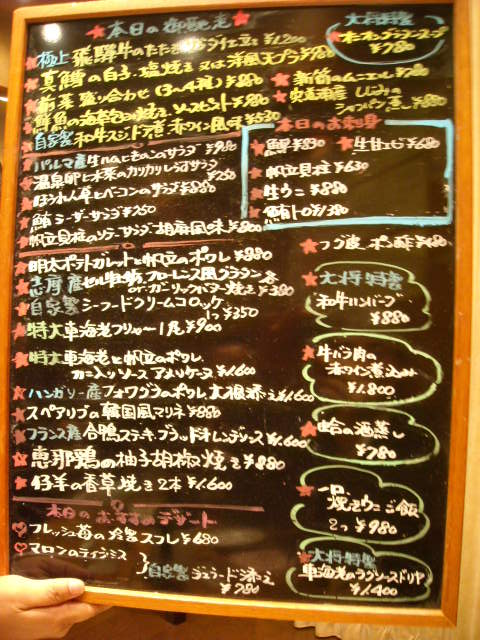 本日の御馳走
極上 飛騨牛のたたき ¥1,200
真鱈の白子 塩焼き 又は 洋風天プラ ¥980
前菜盛り合わせ (3〜4種) ¥880
自家製 和牛スジ 赤ワイン風味 ¥530
パルマ産生ハムともものサラダ ¥980
温泉卵と水菜のカリカリじゃこサラダ ¥750
ほうれん草とベーコンのサラダ ¥880
鮪 シーザーサラダ ¥250
帆立貝柱のソテーサラダ 胡麻風味 ¥880
明太ポテトガレットと帆立のポワレ ¥980
志摩産 フローレンス風グラタン
or ガーリックバター焼き ¥380
自家製 シーフードクリームコロッケ
1つ ¥350
特大車海老フライ 1尾 ¥900
特大車海老と帆立のポワレ
カニ入りソース アメリケーヌ ¥1,600
ハンガリー産 フォワグラのポワレ 大根添え ¥1,600
スペアリブの韓国風マリネ ¥880
フランス産 合鴨ステーキ ブラッドオレンジソース ¥1,600
恵那鶏の柚子胡椒焼き ¥880
仔羊の香草焼き 2本 ¥1,600
本日のおすすめデザート
フレッシュ苺の スフレ ¥680
マロンのティラミス
自家製 ジェラード添え
¥780
大将特製
オニオングラタンスープ
¥780
のムニエル ¥780
しじみの
シャンパン蒸し ¥780
本日のお刺身
¥830
生甘エビ ¥680
帆立貝柱 ¥630
生ウニ ¥880
鮪トロ ¥1,380
フグ皮 ポン酢 ¥480
大将特製
和牛ハンバーグ
¥880
牛バラ肉の
赤ワイン煮込み
¥1,800
蛤の酒蒸し
¥780
一口
焼きウニご飯
2つ ¥980
大将特製
車海老のラグソースドリヤ
¥1,400